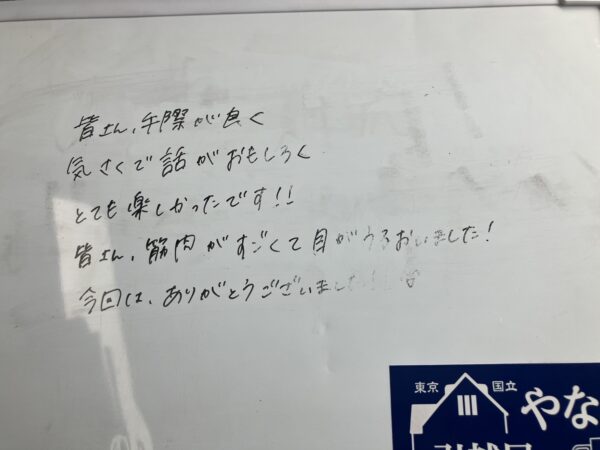 皆さん、手際が良く
気さくで話がおもしろく
とても楽しかったです!!
皆さん、筋肉がすごくて目がうるおいました!
今回は、ありがとうございました!!
東京 国立
やな